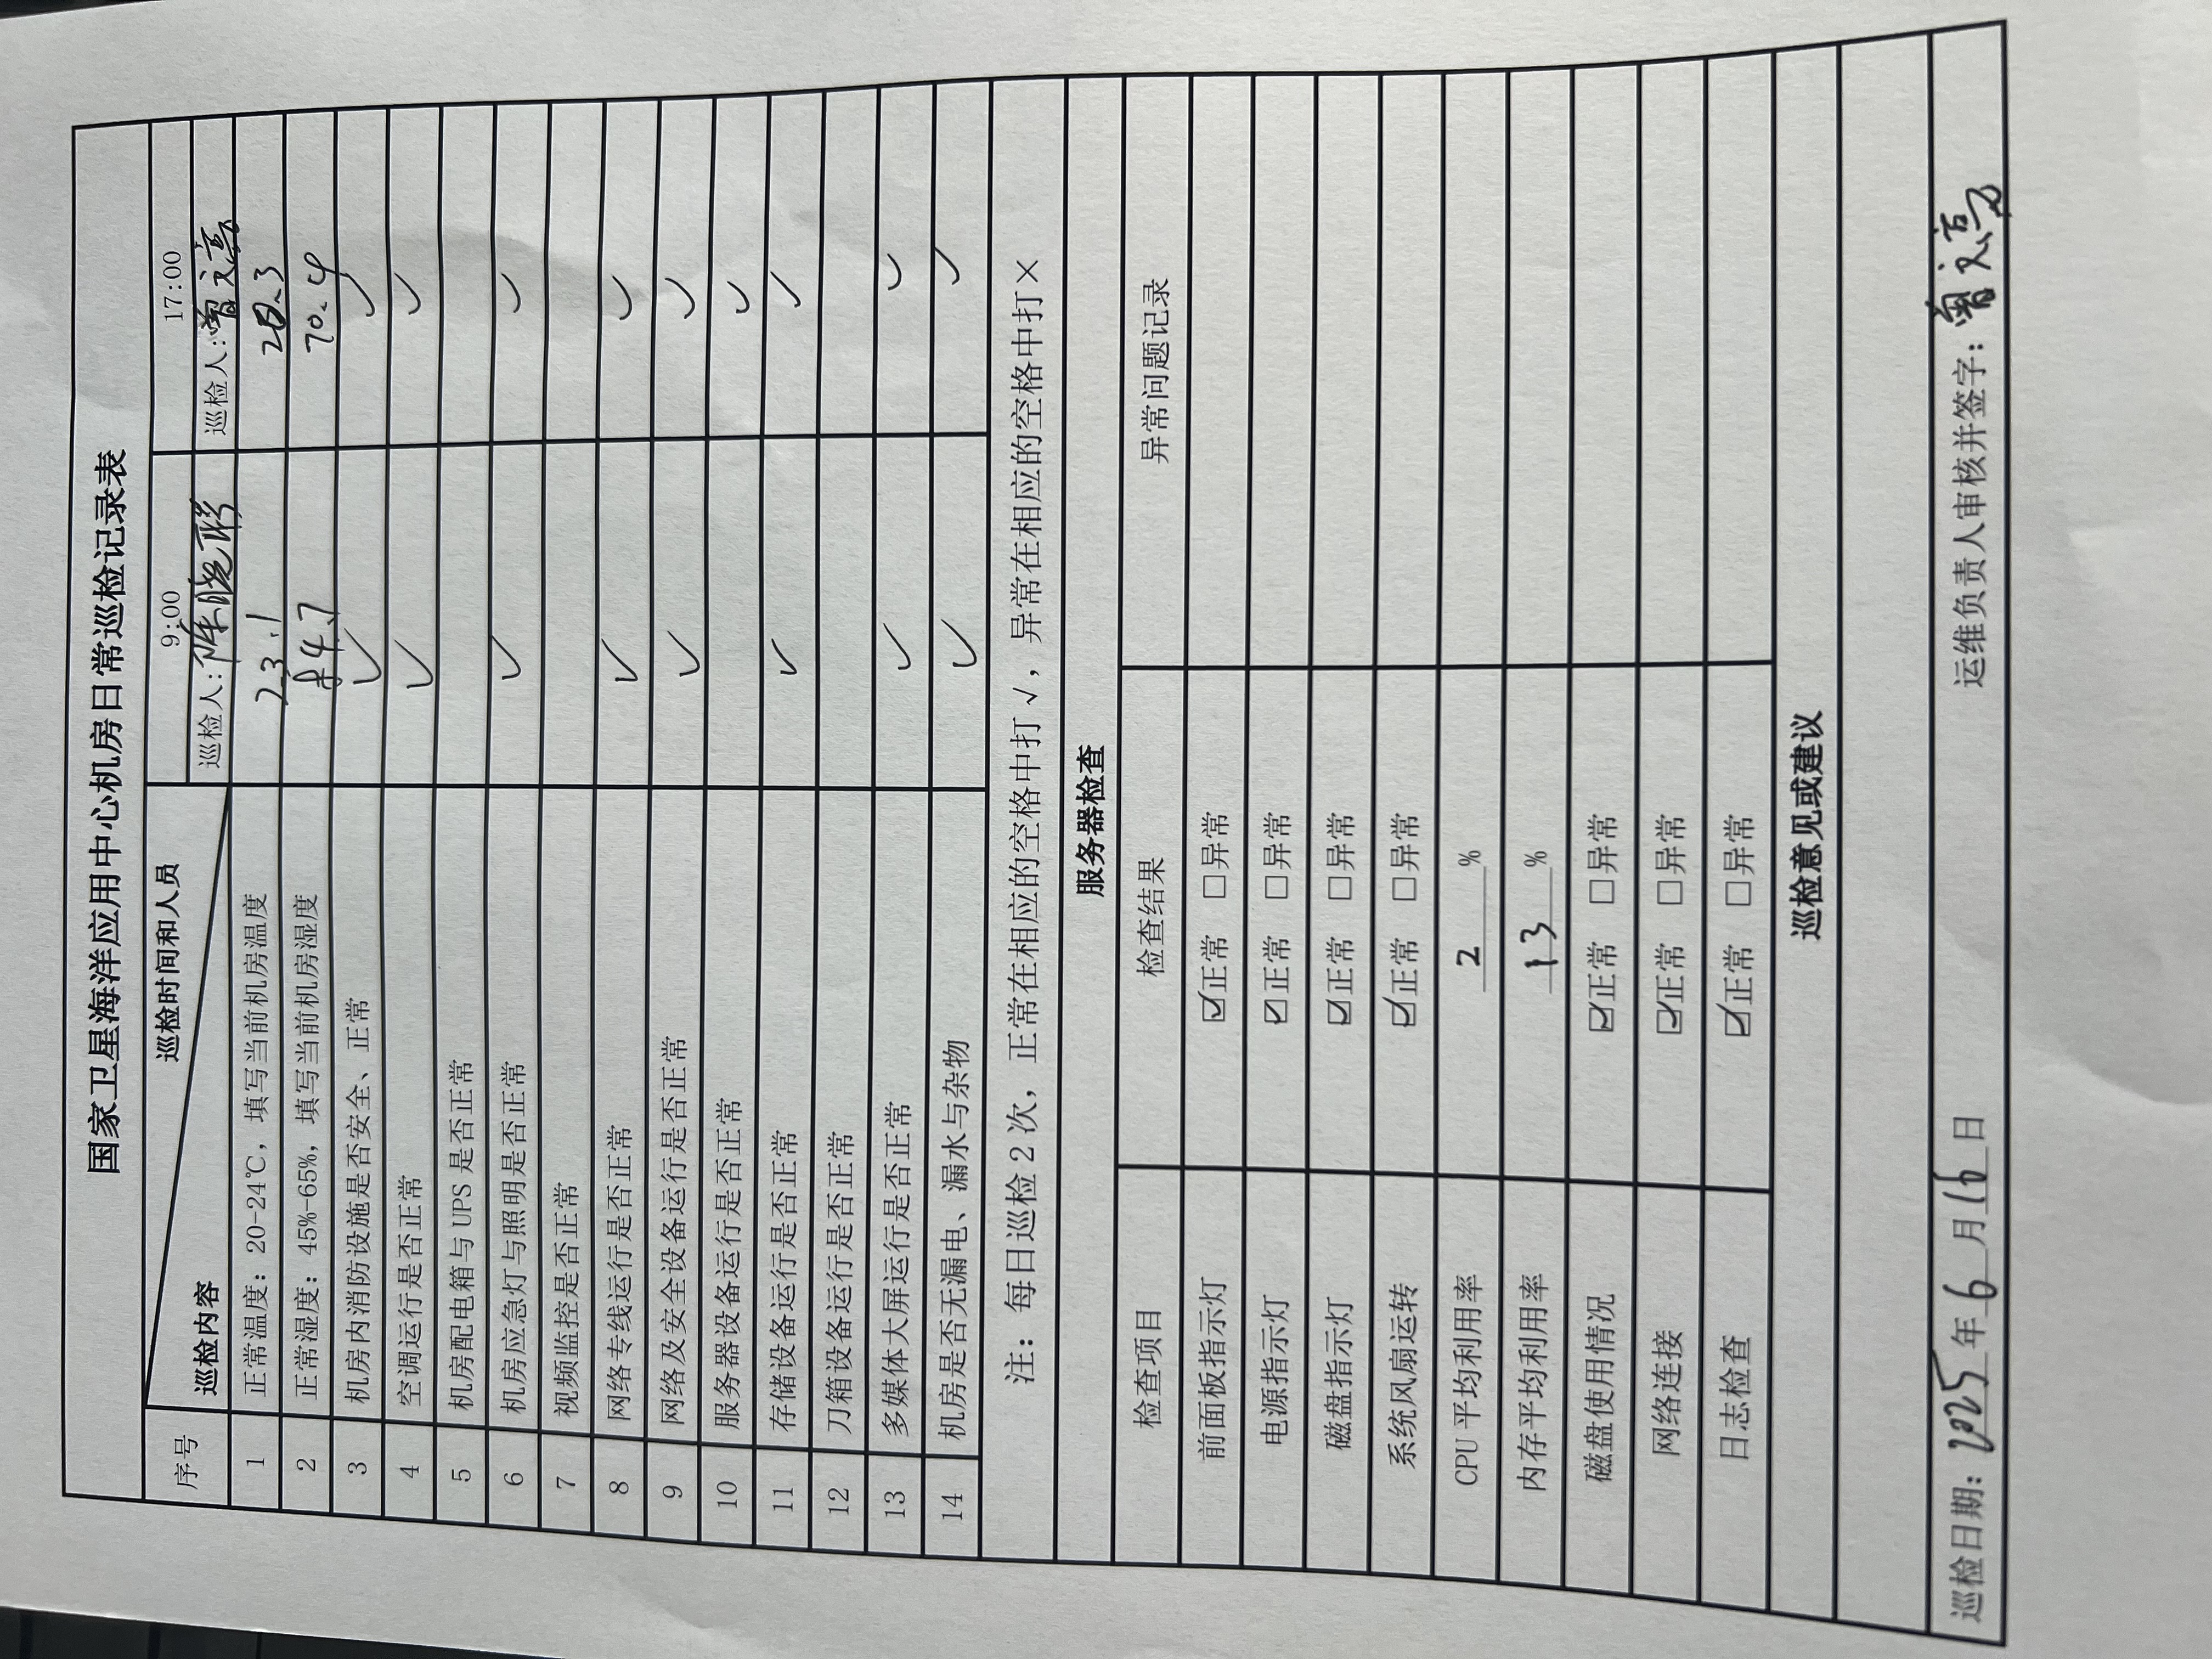 国家卫星海洋应用中心机房日常巡检记录表
序号 巡检内容 巡检时间和人员 9:00 17:00
巡检人：陈晓彤 巡检人：曾文亮
1 正常温度：20-24℃，填写当前机房温度 23.1 28.3
2 正常湿度：45%-65%，填写当前机房湿度 70.4
3 机房内消防设施是否安全、正常 ✓ ✓
4 空调运行是否正常 ✓ ✓
5 机房配电箱与 UPS 是否正常
6 机房应急灯与照明是否正常 ✓ ✓
7 视频监控是否正常
8 网络专线运行是否正常 ✓ ✓
9 网络及安全设备运行是否正常 ✓ ✓
10 服务器设备运行是否正常 ✓
11 存储设备运行是否正常 ✓ ✓
12 刀箱设备运行是否正常
13 多媒体大屏运行是否正常 ✓ ✓
14 机房是否无漏电、漏水与杂物 ✓ ✓
注：每日巡检 2 次，正常在相应的空格中打√，异常在相应的空格中打×
服务器检查
检查项目 检查结果 异常问题记录
前面板指示灯 ☑正常 □异常
电源指示灯 ☑正常 □异常
磁盘指示灯 ☑正常 □异常
系统风扇运转 ☑正常 □异常
CPU 平均利用率 2 %
内存平均利用率 13 %
磁盘使用情况 ☑正常 □异常
网络连接 ☑正常 □异常
日志检查 ☑正常 □异常
巡检意见或建议
巡检日期：2025 年 6 月 16 日 运维负责人审核并签字：曾文亮